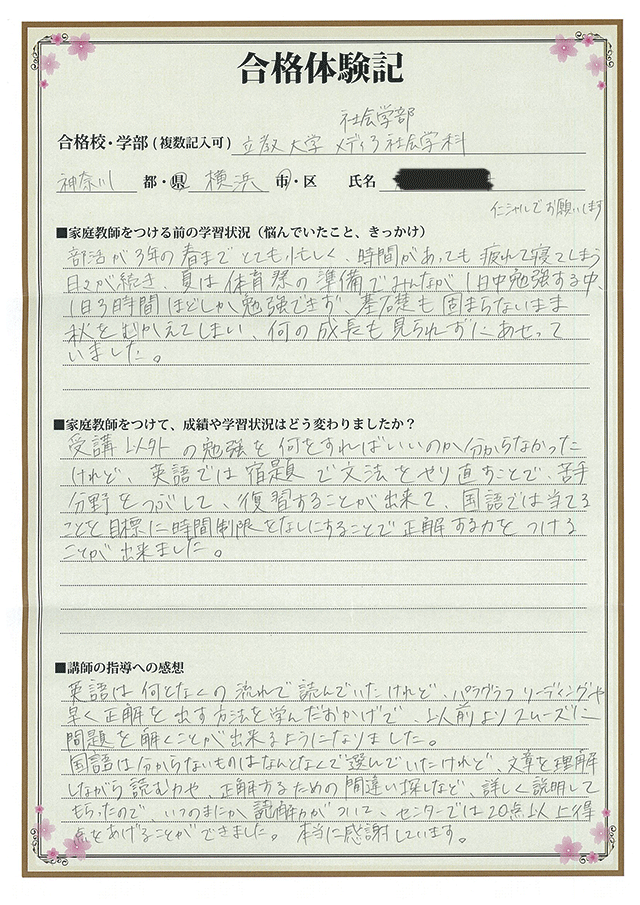 合格体験記
社会学部
合格校・学部(複数記入可) 立教大学 メディア社会学科
神奈川 都・県 横浜 市・区 氏名
イニシャルでお願いします
■家庭教師をつける前の学習状況(悩んでいたこと、きっかけ)
部活が3年の春までとても忙しく、時間があっても疲れて寝てしまう
日々が続き、夏は体育祭の準備でみんなが1日中勉強する中、
1日3時間ほどしか勉強できず、基礎も固まらないまま
秋をむかえてしまい、何の成長も見られずにあせって
いました。
■家庭教師をつけて、成績や学習状況はどう変わりましたか?
受講以外の勉強を何をすればいいのか分からなかった
けれど、英語では宿題で文法をやり直すことで、苦手
分野をつぶして、復習することが出来て、国語では当てる
ことを目標に時間制限をなしにすることで正解する力をつける
ことが出来ました。
■講師の指導への感想
英語は何となくの流れで読んでいたけれど、パラグラフリーディングや
早く正解を出す方法を学んだおかげで、以前よりスムーズに
問題を解くことが出来るようになりました。
国語は分からないものはなんとなくで選んでいたけれど、文章を理解
しながら読む力や、正解するための間違い探しなど、詳しく説明して
もらったので、いつのまにか読解力がついて、センターでは20点以上得
点をあげることができました。本当に感謝しています。